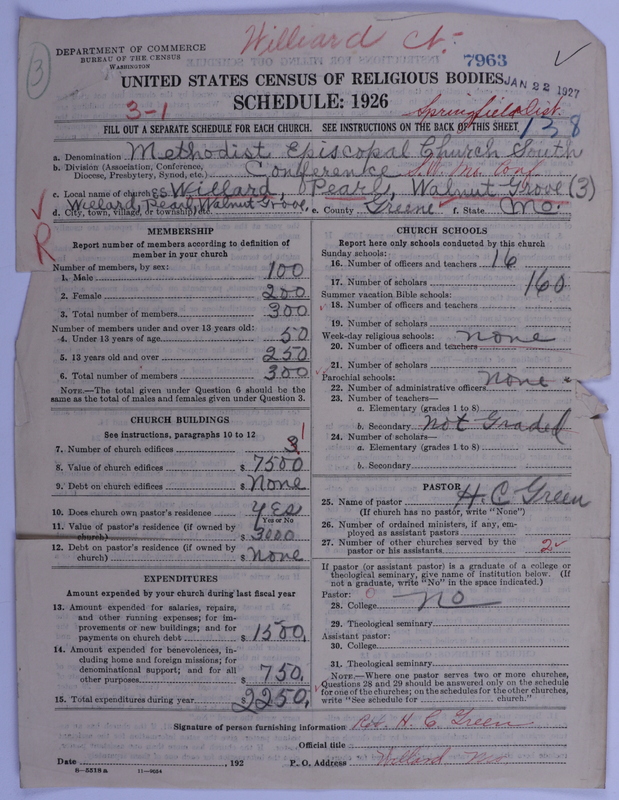 3
Williard Ct.
7963
DEPARTMENT OF COMMERCE
BUREAU OF THE CENSUS
WASHINGTON
UNITED STATES CENSUS OF RELIGIOUS BODIES
JAN 22 1927
SCHEDULE: 1926
3-1
Springfield Dist.
FILL OUT A SEPARATE SCHEDULE FOR EACH CHURCH. SEE INSTRUCTIONS ON THE BACK OF THIS SHEET.
138
a. Denomination Methodist Episcopal Church South
b. Division (Association, Conference, Diocese, Presbytery, Synod, etc.) Conference S.W. Mo. Conf
c. Local name of church es Willard, Pearl, Walnut Grove (3)
d. City, town, village, or township, etc. Willard, Pearl, Walnut Grove, e. County Greene f. State Mo.
R
MEMBERSHIP
Report number of members according to definition of member in your church
Number of members, by sex:
1. Male 100
2. Female 200
3. Total number of members 300
Number of members under and over 13 years old:
4. Under 13 years of age 50
5. 13 years old and over 250
6. Total number of members 300
NOTE.—The total given under Question 6 should be the same as the total of males and females given under Question 3.
CHURCH BUILDINGS
See instructions, paragraphs 10 to 12
7. Number of church edifices 3 1
8. Value of church edifices $ 7500
9. Debt on church edifices $ None
10. Does church own pastor's residence yes
Yes or No
11. Value of pastor's residence (if owned by church) $ 3000
12. Debt on pastor's residence (if owned by church) $ None
EXPENDITURES
Amount expended by your church during last fiscal year
13. Amount expended for salaries, repairs, and other running expenses; for improvements or new buildings; and for payments on church debt $ 1500,
14. Amount expended for benevolences, including home and foreign missions; for denominational support; and for all other purposes $ 750,
15. Total expenditures during year $ 2250,
CHURCH SCHOOLS
Report here only schools conducted by this church
Sunday schools:
16. Number of officers and teachers 16
17. Number of scholars 160
Summer vacation Bible schools:
18. Number of officers and teachers
19. Number of scholars
Week-day religious schools: none
20. Number of officers and teachers
21. Number of scholars
Parochial schools: None
22. Number of administrative officers
23. Number of teachers—
a. Elementary (grades 1 to 8)
b. Secondary Not Graded
24. Number of scholars—
a. Elementary (grades 1 to 8)
b. Secondary
PASTOR
25. Name of pastor H. C Green
(If church has no pastor, write "None")
26. Number of ordained ministers, if any, employed as assistant pastors
27. Number of other churches served by the pastor or his assistants 2
If pastor (or assistant pastor) is a graduate of a college or theological seminary, give name of institution below. (If not a graduate, write "No" in the space indicated.)
Pastor: 0
28. College no
29. Theological seminary
Assistant pastor:
30. College
31. Theological seminary
NOTE.—Where one pastor serves two or more churches, Questions 28 and 29 should be answered only on the schedule for one of the churches; on the schedules for the other churches, write "See schedule for church."
Signature of person furnishing information H. C Green
Official title
Date , 192 P. O. Address Willard Mo
8—5518a 11—9624